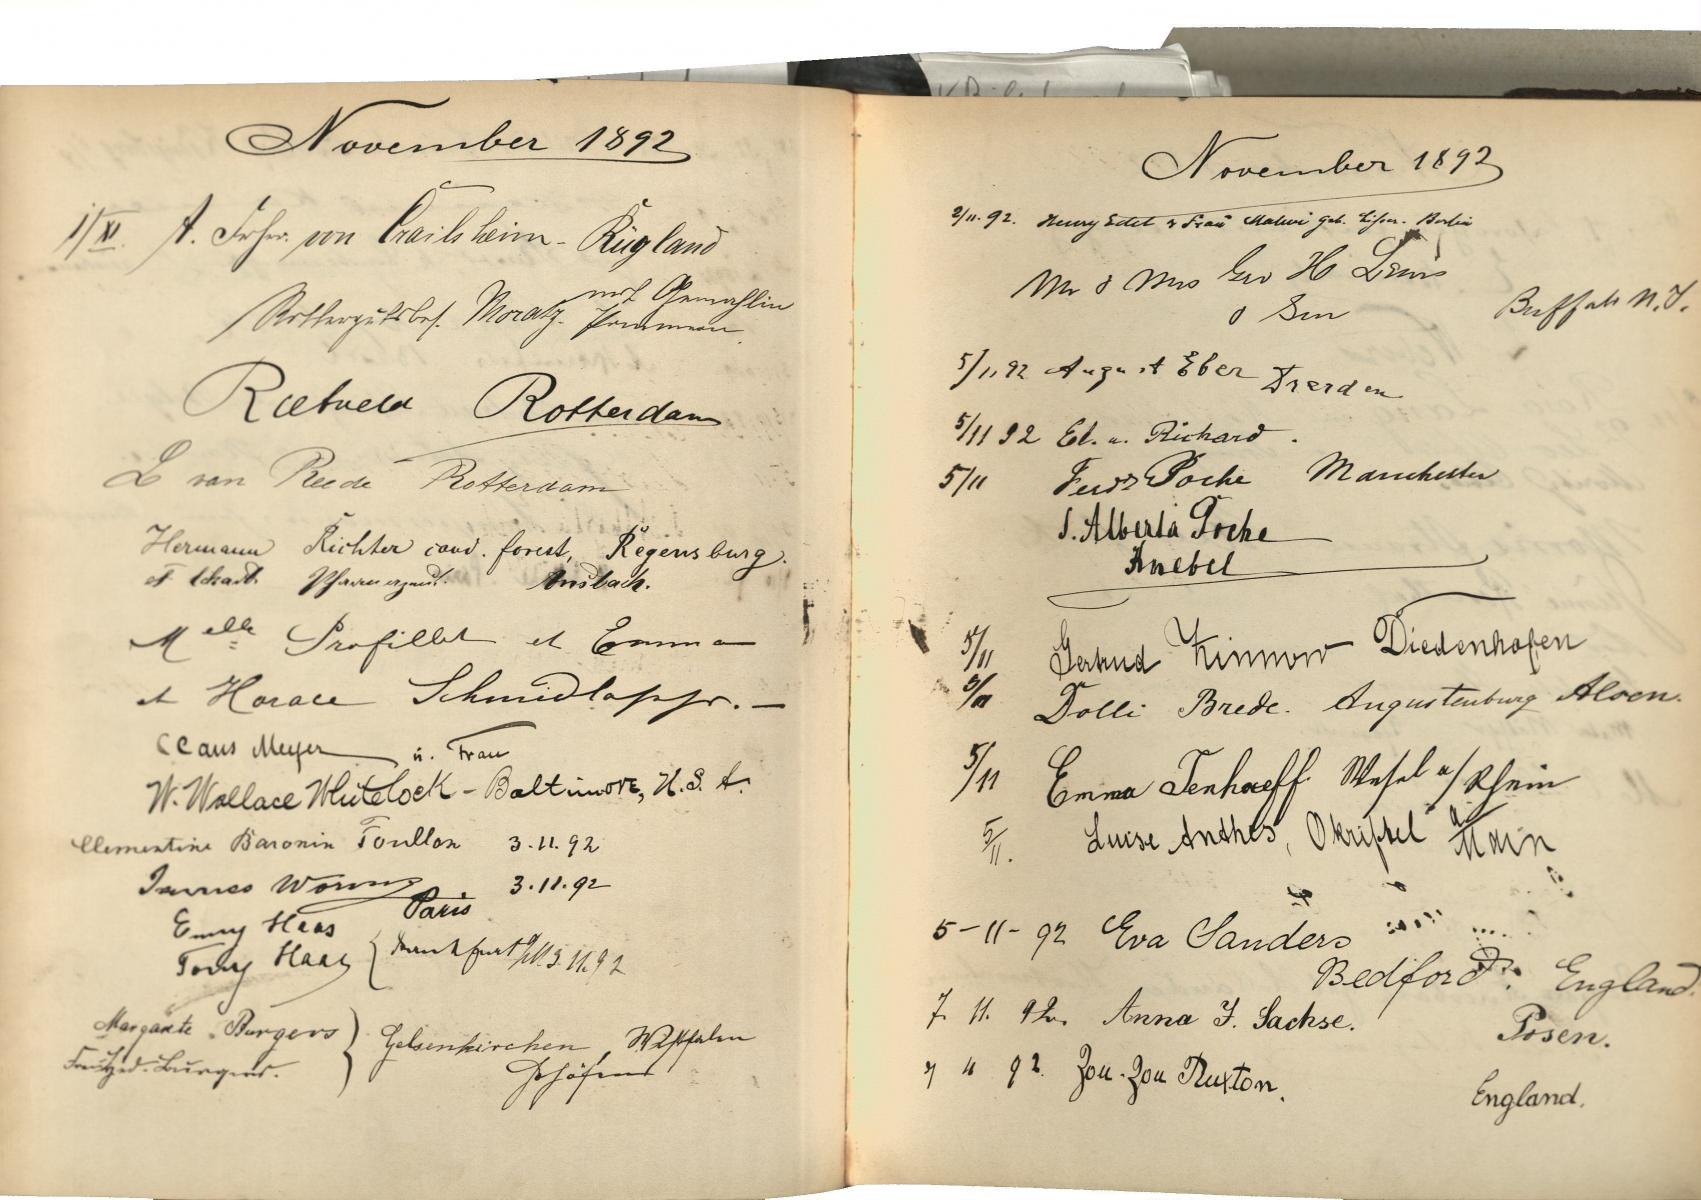 November 1892
1/XI. A. Frhr. von Crailsheim - Rügland
mit Gemahlin
Rittergutsbes. Moratz. Pommern.
Rietveld Rotterdam
L van Reede Rotterdam
Hermann Richter cand. forest, Regensburg.
Ansbach.
Melle Profillet et Emma
et Horace Schmidlapp. —
Claus Meyer u. Frau
W. Wallace Whitelock - Baltimore, U.S.A.
Clementine Baronin Toullon 3.11.92
3.11.92
Paris
Emy Haas
Tony Haas } Frankfurt a/M. 3.11.92
Margarete Burgers } Gelsenkirchen Westfalen
November 1892
2/11. 92. Henry u Frau geb. Berlin
Mr & Mrs Geo H Lewis
& Son Buffalo N.Y.
5/11 92 August Eber Dresden
5/11 92 Ed. u. Richard.
5/11 Ferd Poche Manchester
S. Alberta Poche
Knebel
5/11 Gertrud Zinnow Diedenhofen
5/11 Dolli Brede. Augustenburg Alsen.
5/11 Emma Tenhaeff. Wesel a/Rhein
5/11. Luise Anthes, Okriftel a. Main
5-11-92 Eva Sanders
Bedford. England.
7. 11. 92. Anna F. Sachse. Posen.
7 11 92. Zou-Zou Ruxton. England.